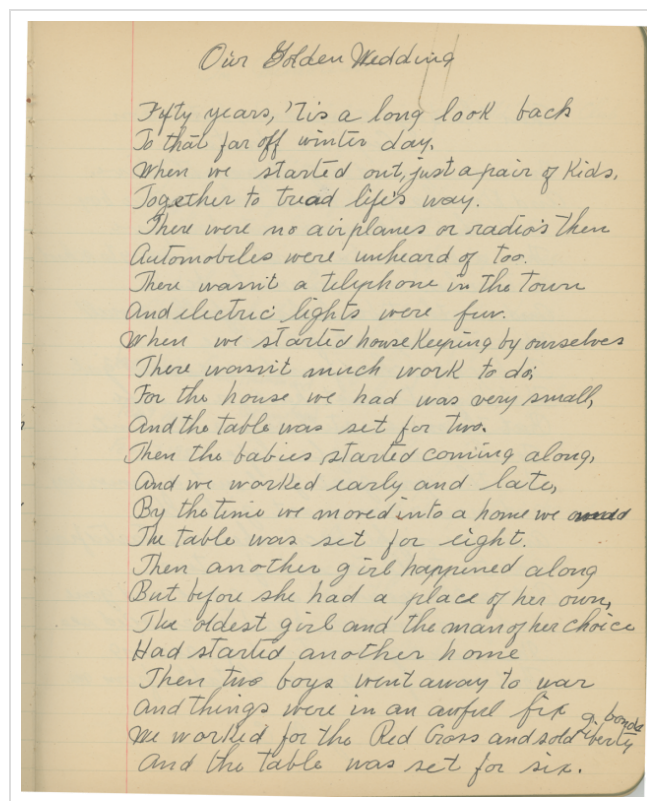 Our Golden Wedding
Fifty years, 'Tis a long look back
To that far off winter day.
When we started out, just a pair of kids,
Together to tread life's way.
There were no airplanes or radio's then
Automobiles were unheard of too.
There wasn't a telephone in the town
And electric lights were few.
When we started housekeeping by ourselves
There wasn't much work to do;
For the house we had was very small,
And the table was set for two.
Then the babies started coming along,
And we worked early and late,
By the time we moved into a home we owned
The table was set for eight.
Then another girl happened along
But before she had a place of her own,
The oldest girl and the man of her choice
Had started another home
Then two boys went away to war
And things were in an awful fix
We worked for the Red Cross and sold liberty bonds
And the table was set for six.